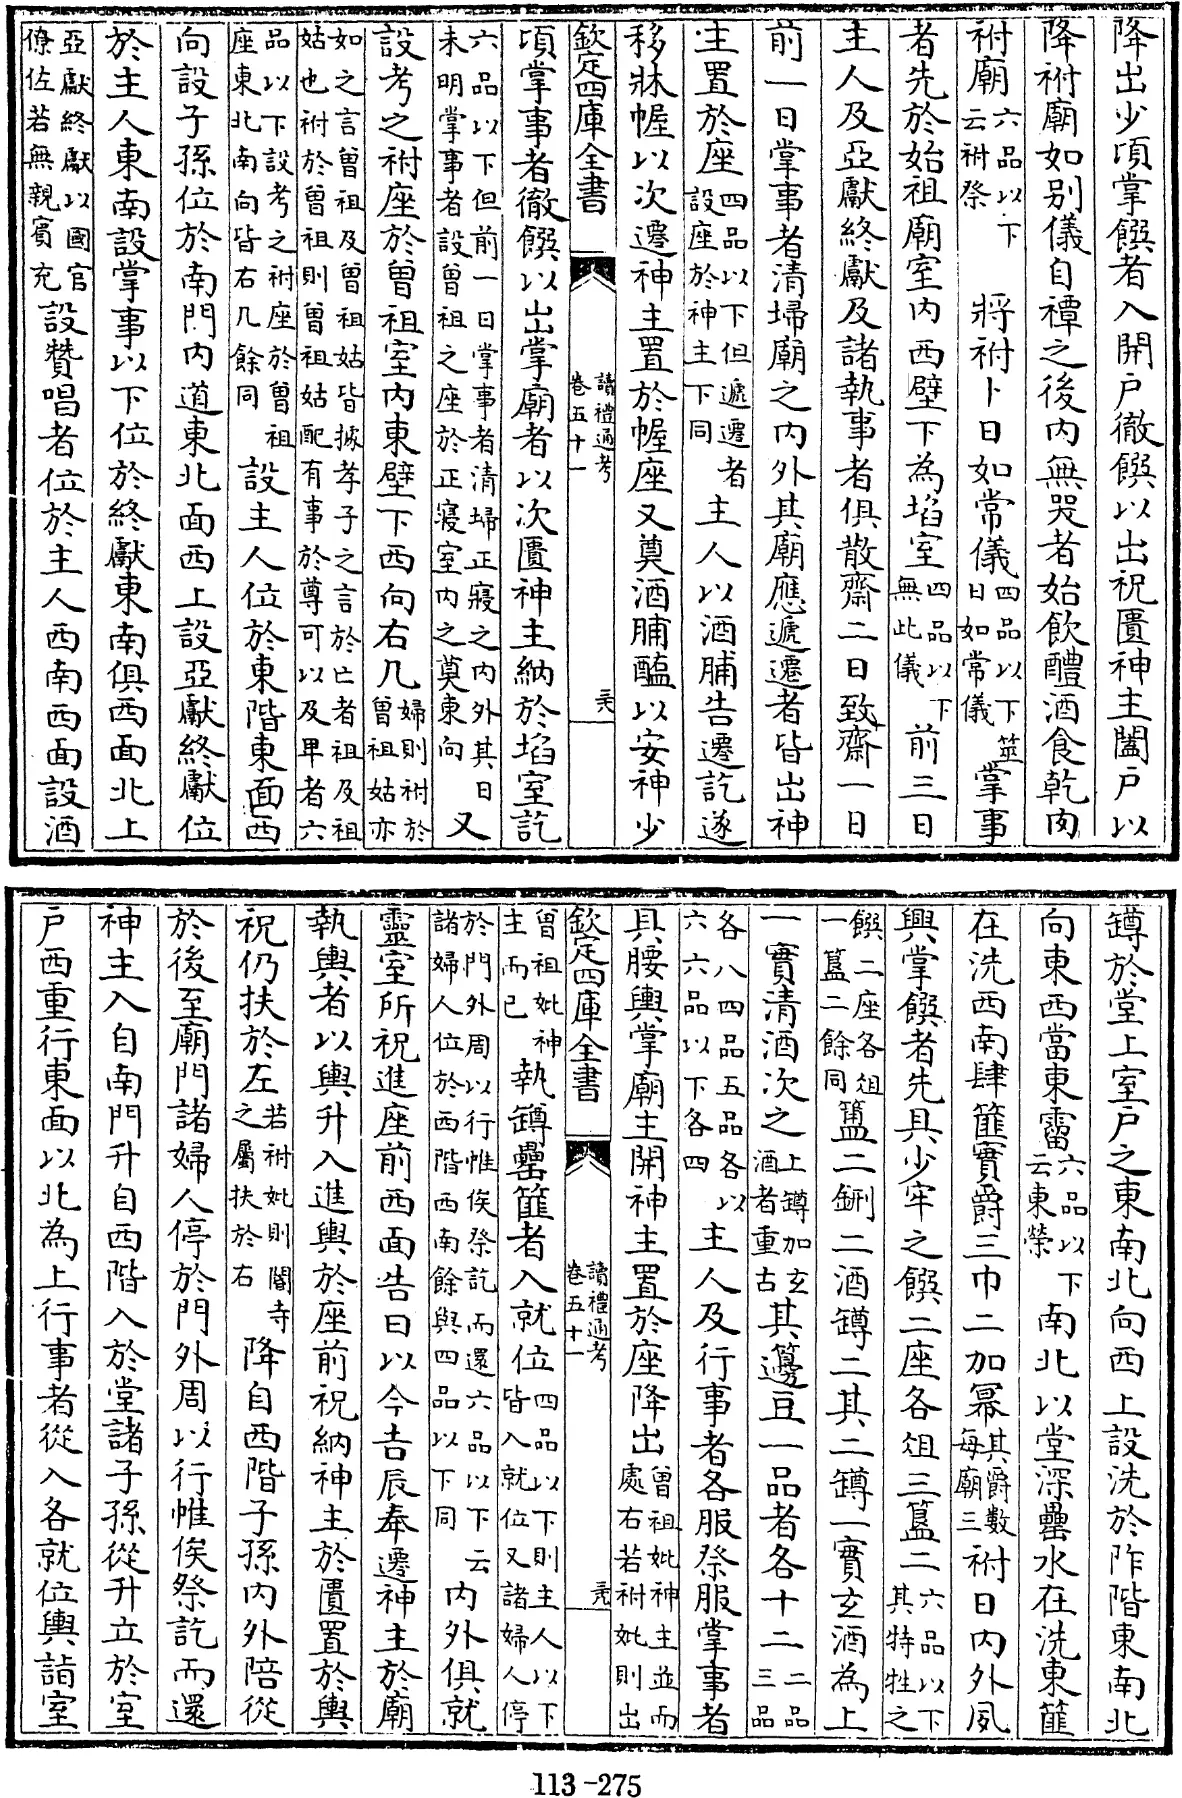 降出少頃掌饌者入開戶徹饌以出祝匱神主闔戶以
降祔廟如別儀自禫之後內無哭者始飲醴酒食乾肉
祔廟六品以下云祔祭 將祔卜日如常儀四品以下筮日如常儀 掌事
者先於始祖廟室內西壁下為埳室四品以下無此儀 前三日
主人及亞獻終獻及諸執事者俱散齋二日致齋一日
前一日掌事者清埽廟之內外其廟應遞遷者皆出神
主置於座四品以下但遞遷者設座於神主下同 主人以酒脯告遷訖遂
移牀幄以次遷神主置於幄座又奠酒脯醢以安神少
欽定四庫全書 讀禮通考卷五十一 天
頃掌事者徹饌以出掌廟者以次匱神主納於埳室訖
六品以下但前一日掌事者清埽正寢之內外其日未明掌事者設曾祖之座於正寢室內之奠東向 又
設考之祔座於曾祖室內東壁下西向右几婦則祔於曾祖姑亦
如之言曾祖及曾祖姑皆據孝子之言於亡者祖及祖姑也祔於曾祖則曾祖姑配有事於尊可以及卑者六
品以下設考之祔座於曾祖座東北南向皆右几餘同 設主人位於東階東面西
向設子孫位於南門內道東北面西上設亞獻終獻位
於主人東南設掌事以下位於終獻東南俱西面北上
亞獻終獻以國官僚佐若無親賓充 設贊唱者位於主人西南西面設酒
罇於堂上室戶之東南北向西上設洗於阼階東南北
向東西當東霤六品以下云東榮 南北以堂深罍水在洗東篚
在洗西南肆篚實爵三巾二加冪其爵數每廟三 祔日內外夙
興掌饌者先具少牢之饌二座各俎三簋二六品以下其特牲之
饌二座各俎一簋二餘同 簠二鉶二酒罇二其二罇一實玄酒為上
一實清酒次之上罇加玄酒者重古 其籩豆一品者各十二二品三品
各八四品五品各六六品以下各四 主人及行事者各服祭服掌事者
具腰輿掌廟主開神主置於座降出曾祖妣神主並而處右若祔妣則出
曾祖妣神主而已 執罇罍篚者入就位四品以下則主人以下皆入就位又諸婦人停
於門外周以行帷俟祭訖而還六品以下云諸婦人位於西階西南餘與四品以下同 內外俱就
靈室所祝進座前西面告曰以今吉辰奉遷神主於廟
執輿者以輿升入進輿於座前祝納神主於匱置於輿
祝仍扶於左若祔妣則閽寺之屬扶於右 降自西階子孫內外陪從
於後至廟門諸婦人停於門外周以行帷俟祭訖而還
神主入自南門升自西階入於堂諸子孫從升立於室
戶西重行東面以北為上行事者從入各就位輿詣室
欽定四庫全書 讀禮通考卷五十一
113-275